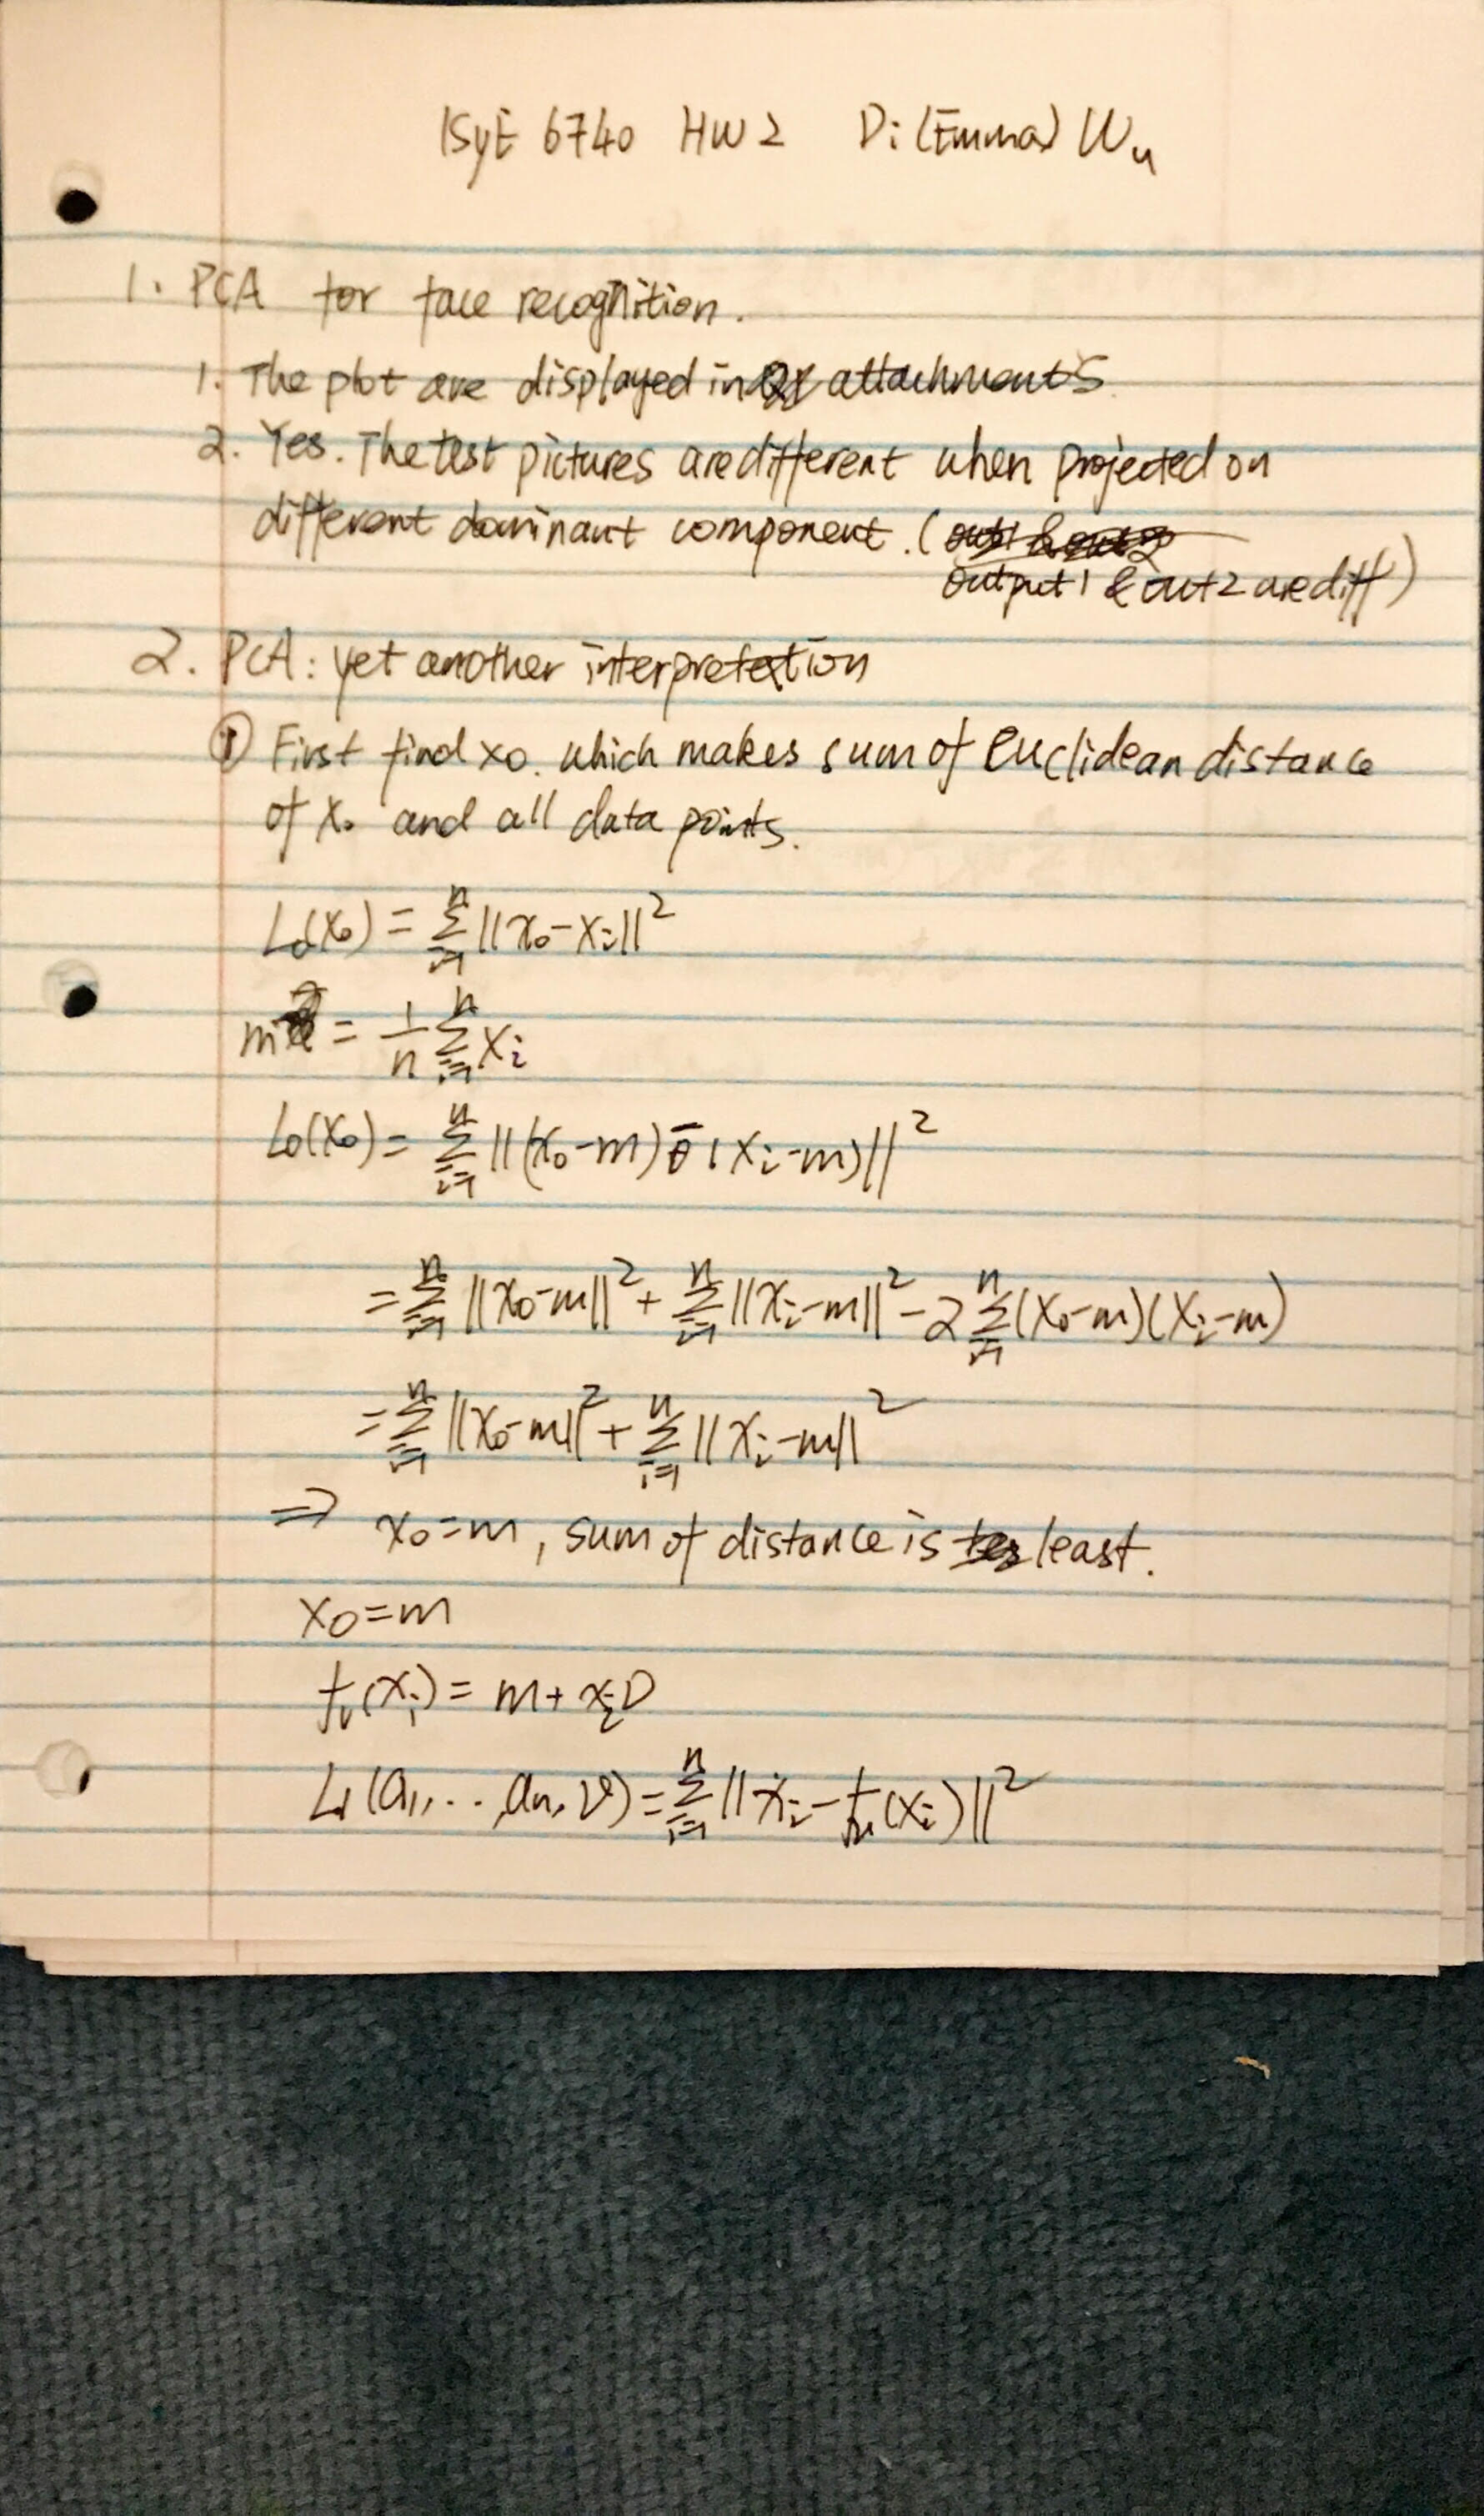 ISyE 6740 HW2 Di (Emma) Wu
1. PCA for face recognition.
1. The plot are displayed in attachments
2. Yes. The test pictures are different when projected on
different dominant component. (
output1 & out2 are diff)
2. PCA: yet another interpretation
① First find x0. which makes sum of Euclidean distance
of x₀ and all data points.
L₀(x₀) = Σⁿᵢ₌₁ ||x₀-xᵢ||²
m = 1/n Σⁿᵢ₌₁ xᵢ
L₀(x₀) = Σⁿᵢ₌₁ ||(x₀-m) - (xᵢ-m)||²
= Σⁿᵢ₌₁ ||x₀-m||² + Σⁿᵢ₌₁ ||xᵢ-m||² - 2 Σⁿᵢ₌₁ (x₀-m)(xᵢ-m)
= Σⁿᵢ₌₁ ||x₀-m||² + Σⁿᵢ₌₁ ||xᵢ-m||²
⇒ x₀=m, sum of distance is least.
x₀=m
fᵥ(xᵢ) = m + xᵢv
L₁(a₁,...,aₙ,v) = Σⁿᵢ₌₁ ||xᵢ - (xᵢ)||²